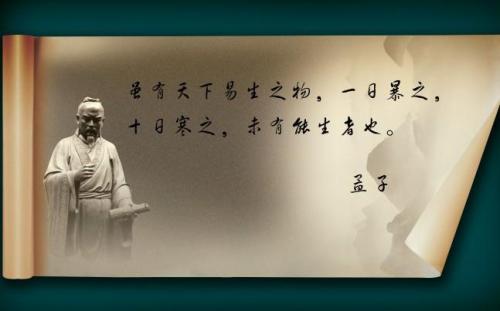 虽有天下易生之物，一日暴之，
十日寒之，未有能生者也。
孟子